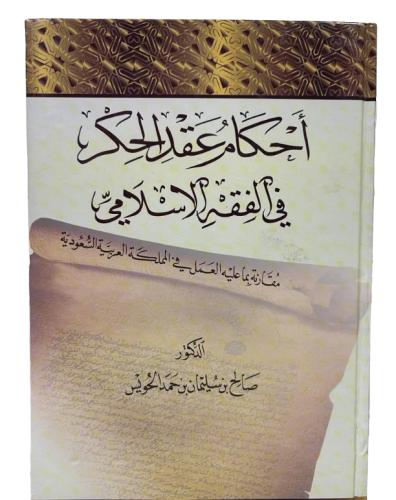 أحكام عقد الحكر
في الفقه الإسلامي
مقارنة بما عليه العمل في المملكة العربية السعودية
الدكتور
صالح بن سليمان بن حمد الحويس